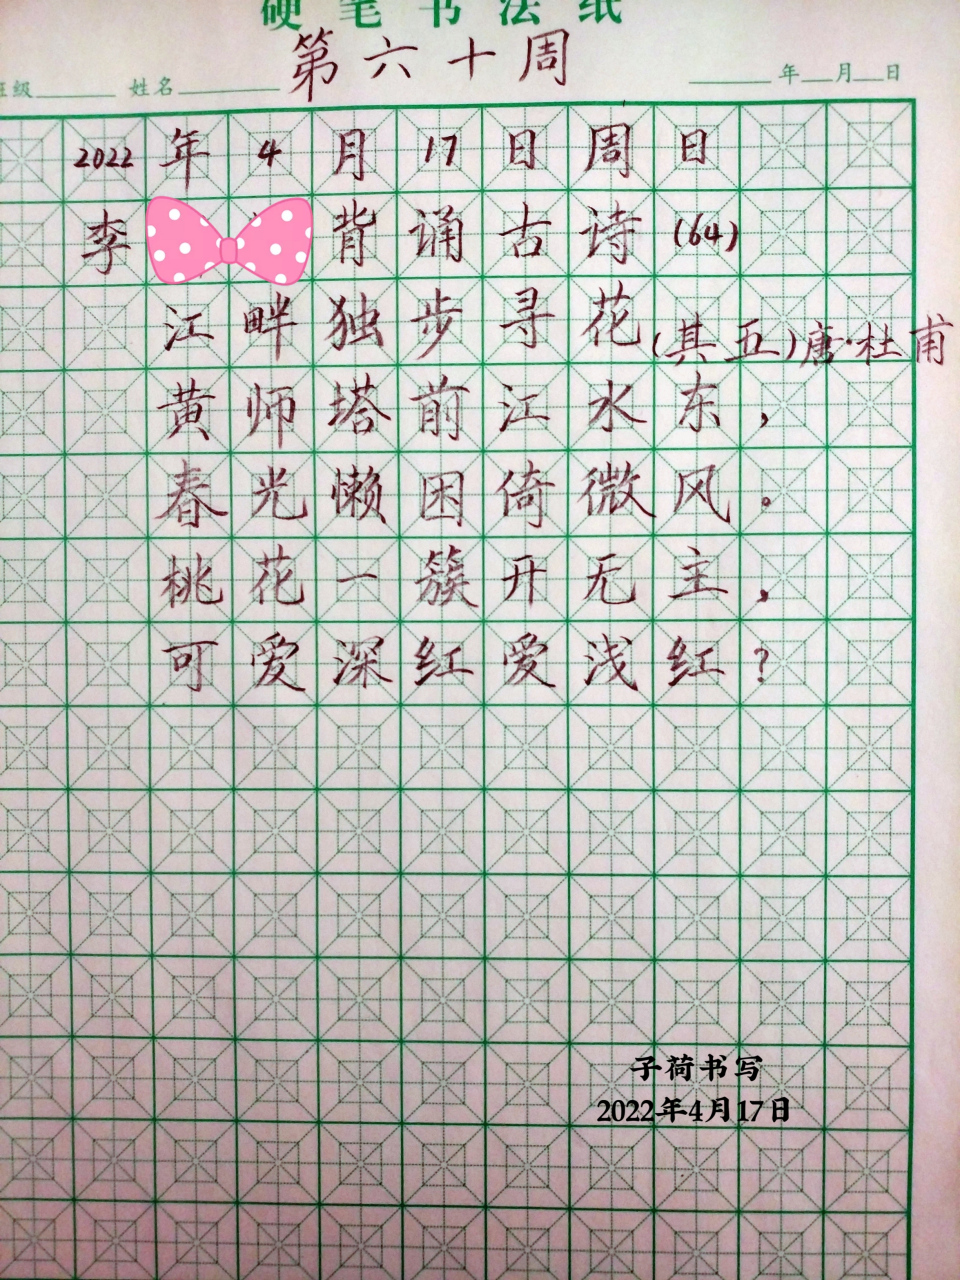 硬笔书法纸
第六十周
班级 姓名 年 月 日
2022年4月17日周日
李 背诵古诗(64)
江畔独步寻花(其五)唐·杜甫
黄师塔前江水东,
春光懒困倚微风。
桃花一簇开无主,
可爱深红爱浅红?
子荷书写
2022年4月17日